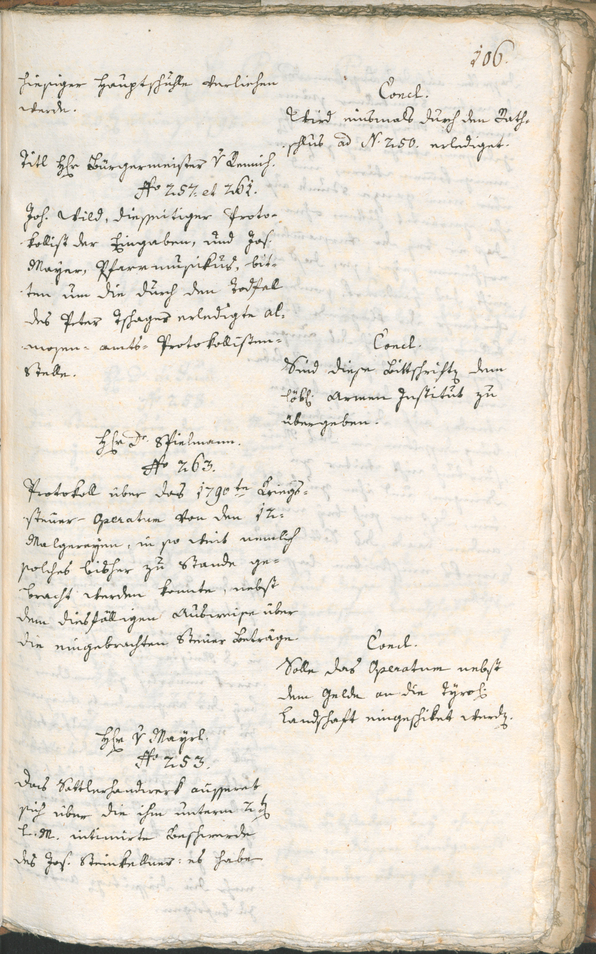 106.
hiesiger Hauptschule verliehen
werde.
Concl.
Wird einsmals durch den Rath-
schlus ad N. 250. erlediget.
Titl Hℓ. Bürgermeister v.
No 257. et 261.
Joh. Wild, diesseitiger Proto-
kollist der Eingaben, und Jos.
Mayer, Pfarrmusikus, bit-
ten um die durch den Todfal
des Peter Tschager erledigte al-
mosen-amts-Protokollisten-
Stelle.
Concl.
Sind diese Bittschriften dem
löbl. Armen Institut zu
übergeben.
Hr. Dr. Spielmann.
No 263.
Protokoll über das 1790te Kriegs-
steuer-Operatum von den 12.
Malgereyen, in so weit nemlich
solches bisher zu Stande ge-
bracht werden konnte, nebst
dem diesfälligen Ausweise über
die eingebrachten Steuer Beträge.
Concl.
Solle das Operatum nebst
dem Gelde an die Tyrol.
Landschaft eingeschiket werden.
Hr. v. Mayrl.
No 253.
Das Sattlerhandwerk äussert
sich über die ihm unterm
l. M. intimirte Beschwerde
des Jos. Steinkellner: es habe